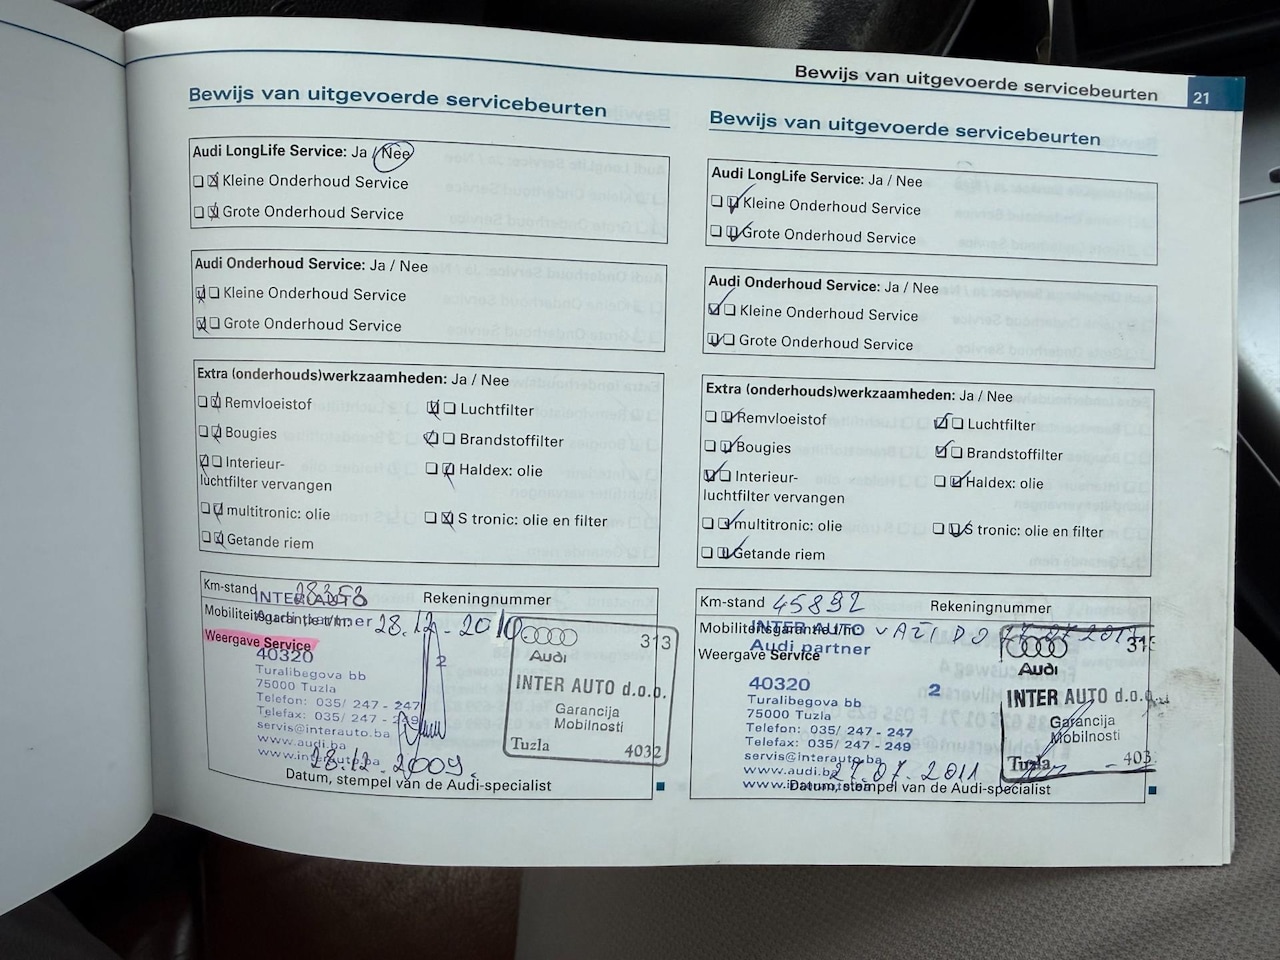 Bewijs van uitgevoerde servicebeurten
21
Bewijs van uitgevoerde servicebeurten
Audi LongLife Service: Ja / Nee
Kleine Onderhoud Service
Grote Onderhoud Service
Audi Onderhoud Service: Ja / Nee
Kleine Onderhoud Service
Grote Onderhoud Service
Extra (onderhouds)werkzaamheden: Ja / Nee
Remvloeistof
Luchtfilter
Bougies
Brandstoffilter
Interieur-
luchtfilter vervangen
Haldex: olie
multitronic: olie
S tronic: olie en filter
Getande riem
Km-stand
Rekeningnummer
INTER AUTO
Mobiliteitsgarantie t/m
28.12-2010
Audi partner
Weergave Service
40320
2
Turalibegova bb
75000 Tuzla
Telefon: 035/ 247 - 247
Telefax: 035/ 247 - 249
servis@interauto.ba
www.audi.ba
www.interauto.ba
28.12.2009.
313
Audi
INTER AUTO d.o.o.
Garancija
Mobilnosti
Tuzla
4032
Datum, stempel van de Audi-specialist
Bewijs van uitgevoerde servicebeurten
Audi LongLife Service: Ja / Nee
Kleine Onderhoud Service
Grote Onderhoud Service
Audi Onderhoud Service: Ja / Nee
Kleine Onderhoud Service
Grote Onderhoud Service
Extra (onderhouds)werkzaamheden: Ja / Nee
Remvloeistof
Luchtfilter
Bougies
Brandstoffilter
Interieur-
luchtfilter vervangen
Haldex: olie
multitronic: olie
S tronic: olie en filter
Getande riem
Km-stand 45892
Rekeningnummer
Mobiliteitsgarantie t/m VAŽI DO
INTER AUTO
Audi partner
Weergave Service
40320
2
Turalibegova bb
75000 Tuzla
Telefon: 035/ 247 - 247
Telefax: 035/ 247 - 249
servis@interauto.ba
www.audi.ba
www.interauto.ba
27.07.2011
Audi
INTER AUTO d.o.o.
Garancija
Mobilnosti
Tuzla
403
Datum, stempel van de Audi-specialist